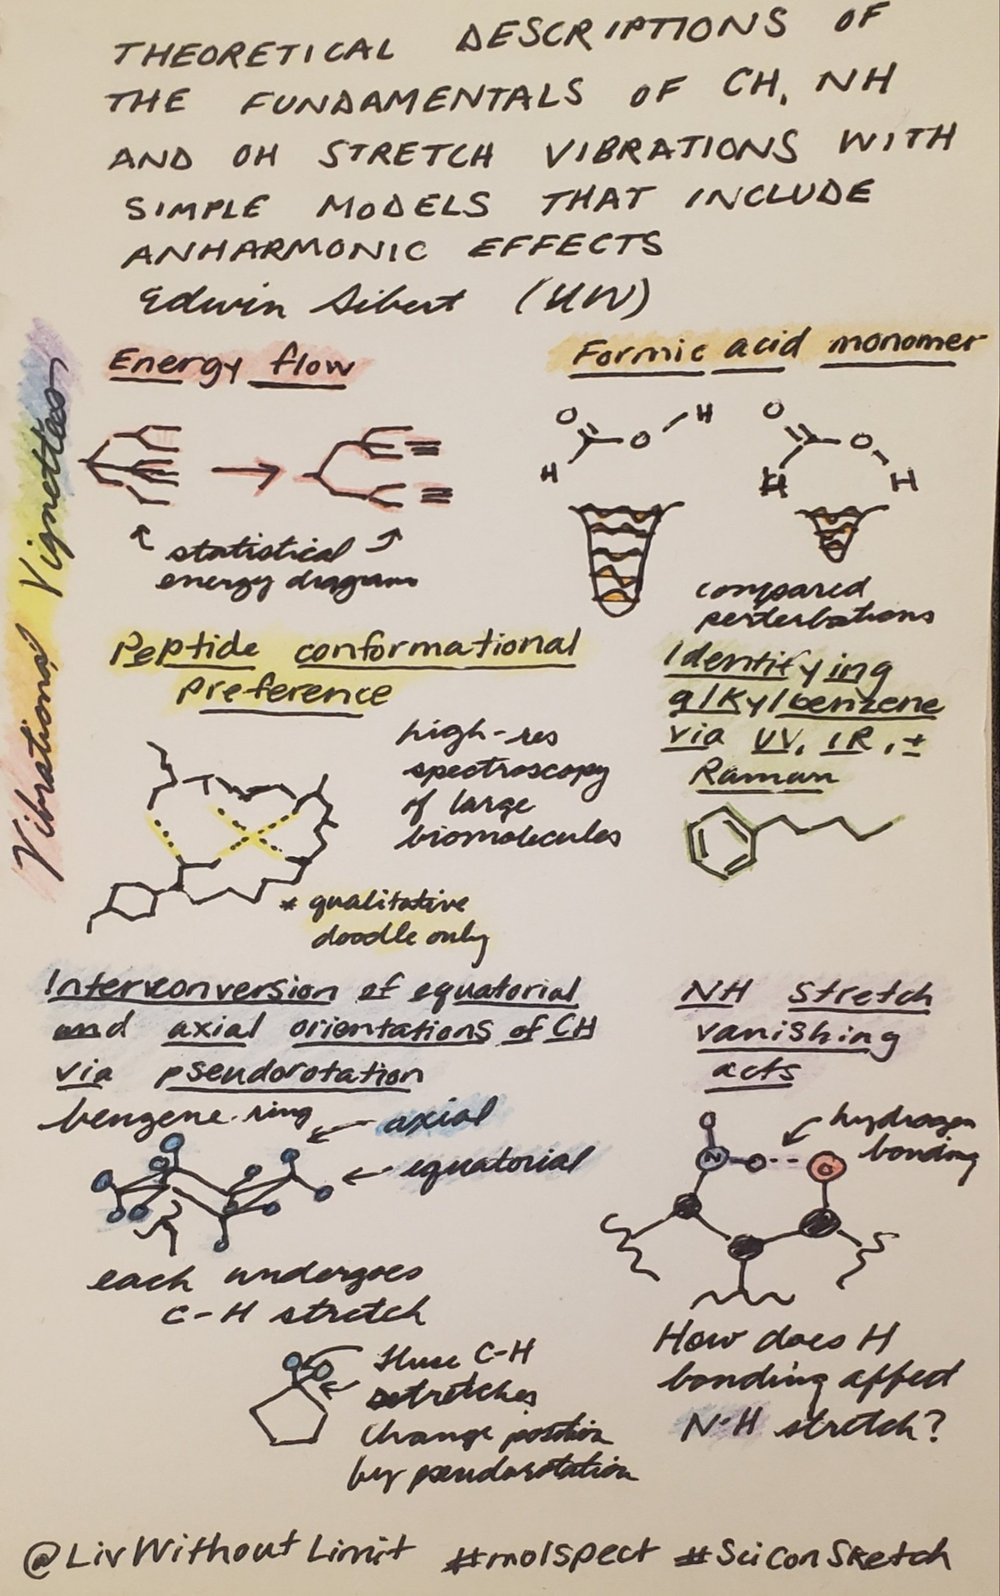 THEORETICAL DESCRIPTIONS OF
THE FUNDAMENTALS OF CH, NH
AND OH STRETCH VIBRATIONS WITH
SIMPLE MODELS THAT INCLUDE
ANHARMONIC EFFECTS
Edwin Sibert (UW)
Vibrational Vignettes
Energy flow
statistical
energy diagrams
Formic acid monomer
O
O
H
H
O
O
H
H
compared
perterbations
Peptide conformational
preference
high-res
spectroscopy
of large
biomolecules
* qualitative
doodle only
Identifying
alkylbenzene
via UV, IR, ±
Raman
Interconversion of equatorial
and axial orientations of CH
via pseudorotation
benzene ring
axial
equatorial
each undergoes
C-H stretch
these C-H
stretches
change position
by pseudorotation
NH stretch
vanishing
acts
hydrogen
bonding
N
O
How does H
bonding affect
N-H stretch?
@LivWithoutLimit #molspect #SciConSketch